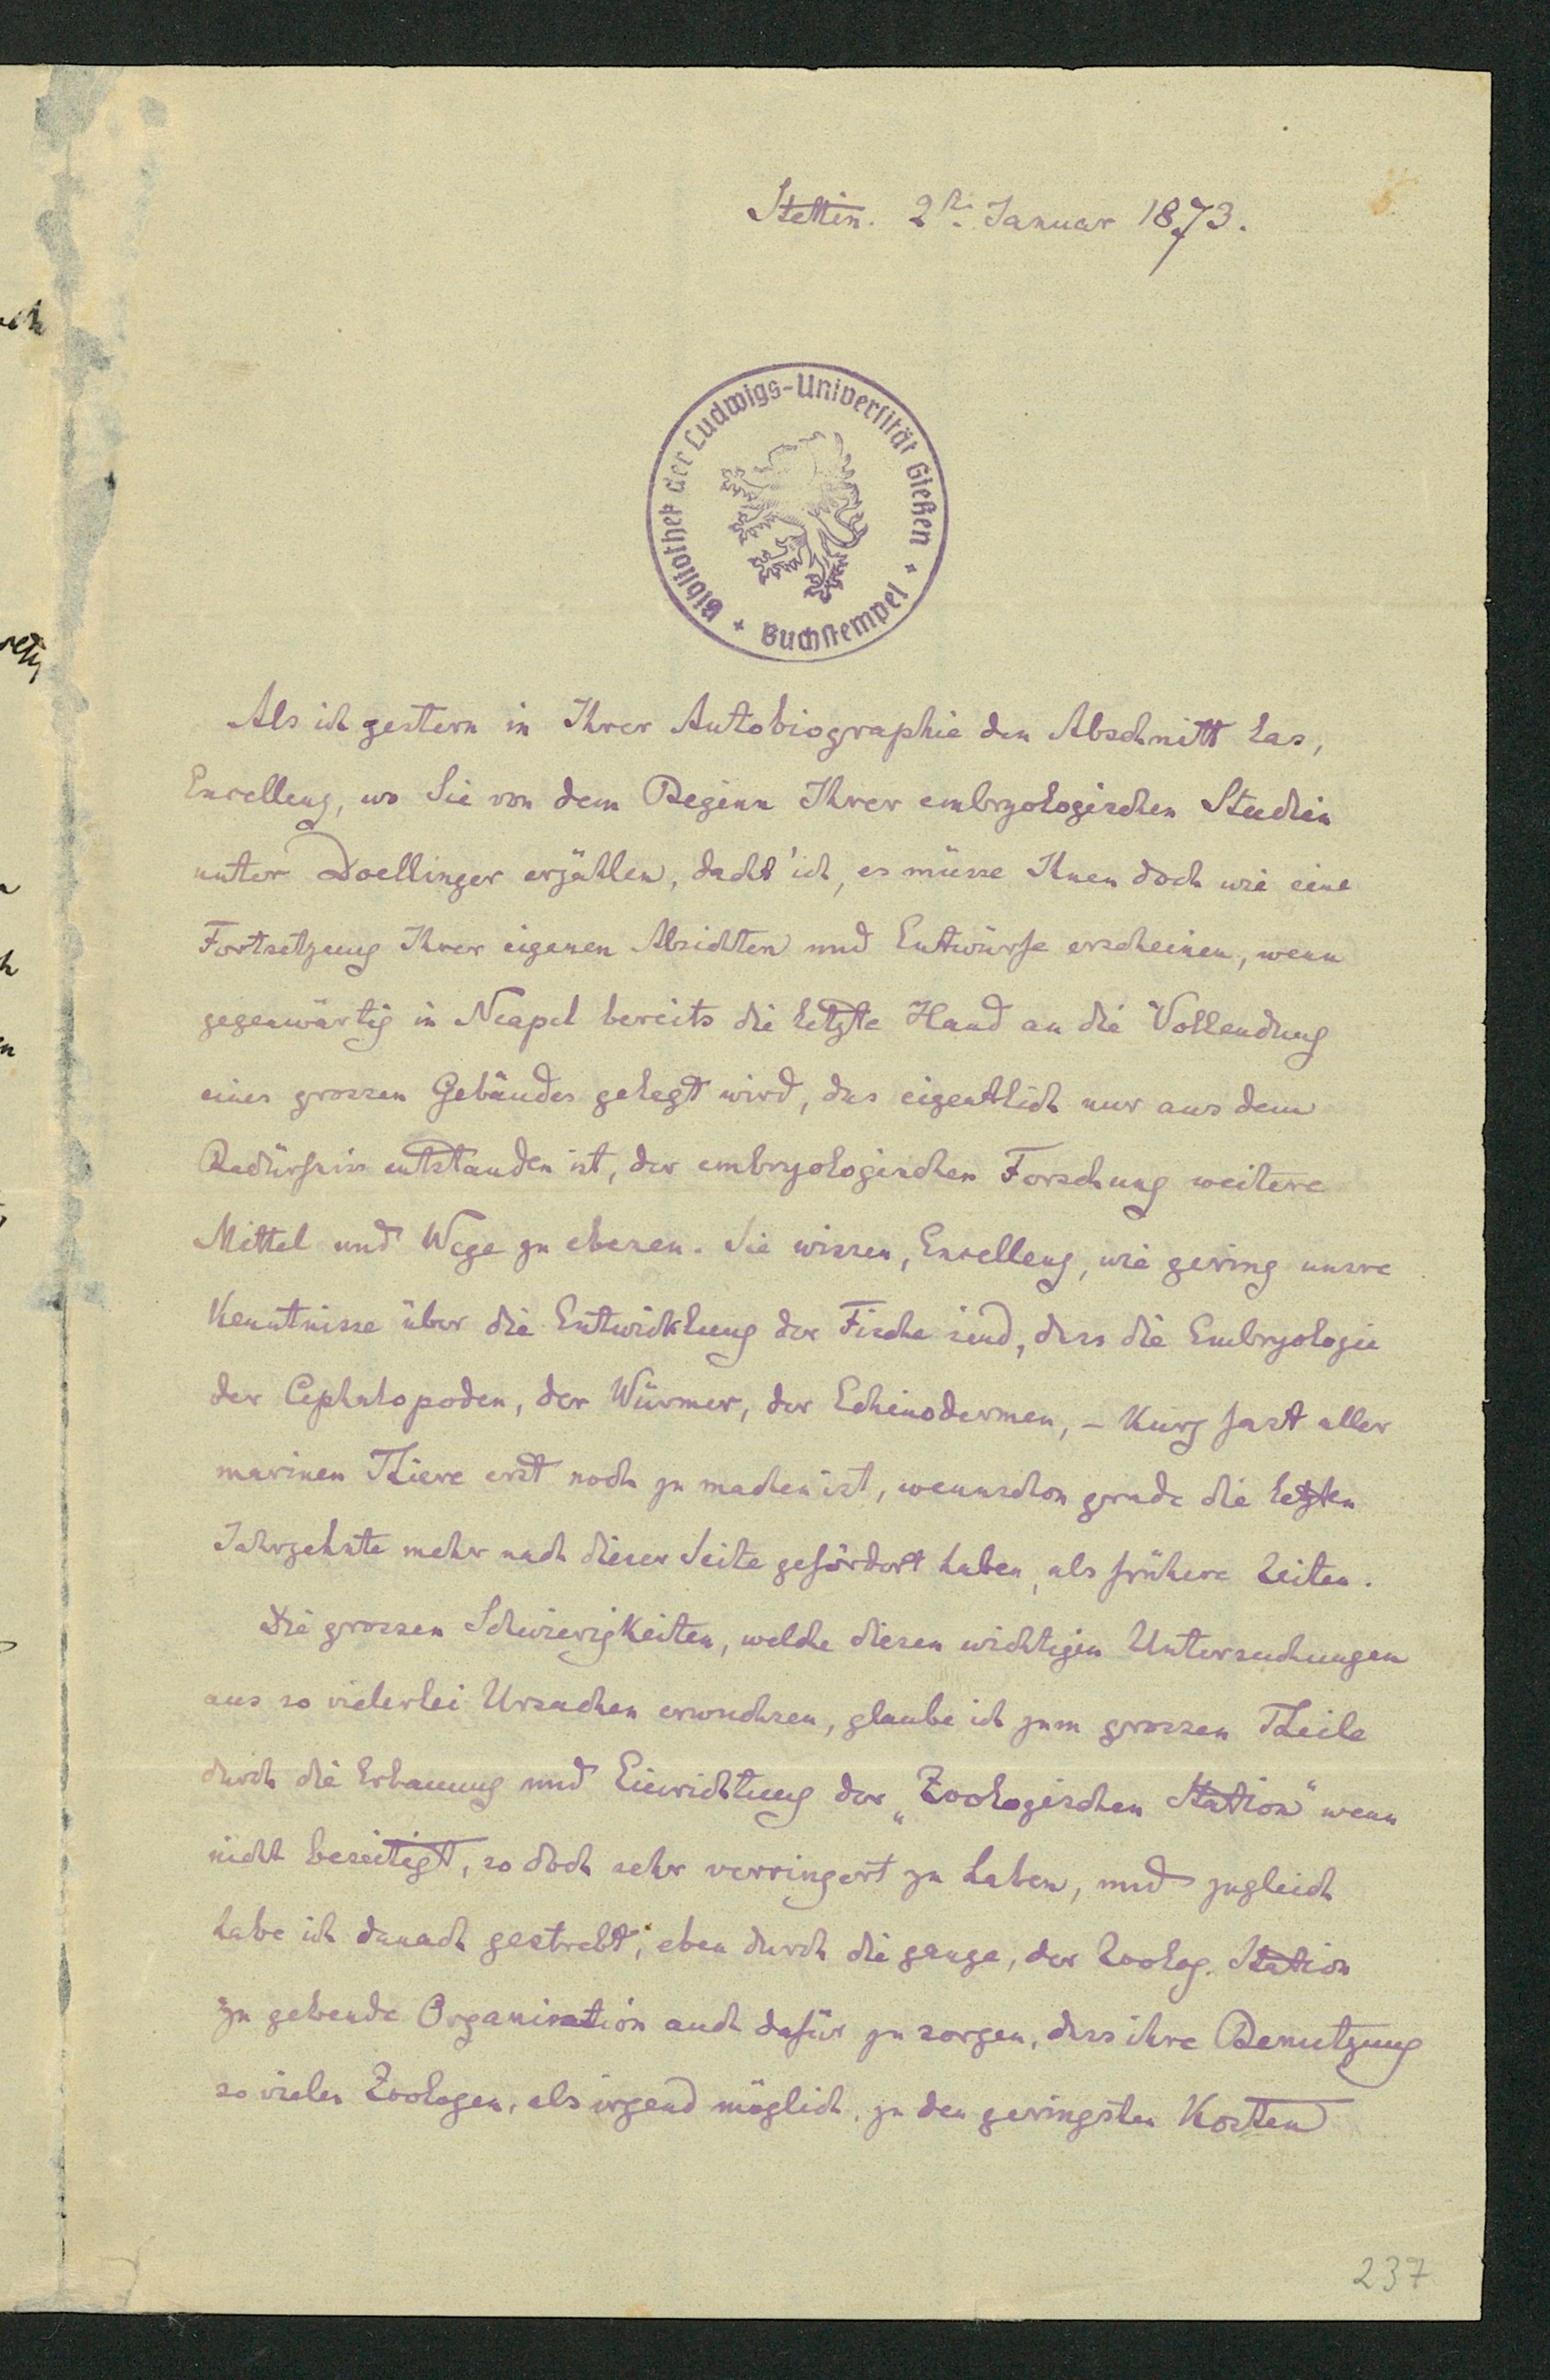 Stettin. 2te Januar 1873.
Bibliothek der Ludwigs-Universität Gießen + Buchstempel +
Als ich gestern in Ihrer Autobiographie den Abschnitt las,
Excellenz, wo Sie von dem Beginn Ihrer embryologischen Studien
unter Doellinger erzählen, dacht' ich, es müsse Ihnen doch wie eine
Fortsetzung Ihrer eigenen Absichten und Entwürfe erscheinen, wenn
gegenwärtig in Neapel bereits die letzte Hand an die Vollendung
eines grossen Gebäudes gelegt wird, das eigentlich nur aus dem
Bedürfniss entstanden ist, der embryologischen Forschung weitere
Mittel und Wege zu ebenen. Sie wissen, Excellenz, wie gering unsre
Kenntnisse über die Entwicklung der Fische sind, dass die Embryologie
der Cephalopoden, der Würmer, der Echinodermen, – kurz fast aller
marinen Thiere erst noch zu machen ist, wennschon grade die letzten
Jahrzehnte mehr nach dieser Seite gefördert haben, als frühere Zeiten.
Die grossen Schwierigkeiten, welche diesen wichtigen Untersuchungen
aus so vielerlei Ursachen erwuchsen, glaube ich zum grossen Theile
durch die Erbauung und Einrichtung der „Zoologischen Station" wenn
nicht beseitigt, so doch sehr verringert zu haben, und zugleich
habe ich danach gestrebt, eben durch die ganze, der Zoolog. Station
zu gebende Organisation auch dafür zu sorgen, dass ihre Benutzung
so vielen Zoologen, als irgend möglich, zu den geringsten Kosten
237